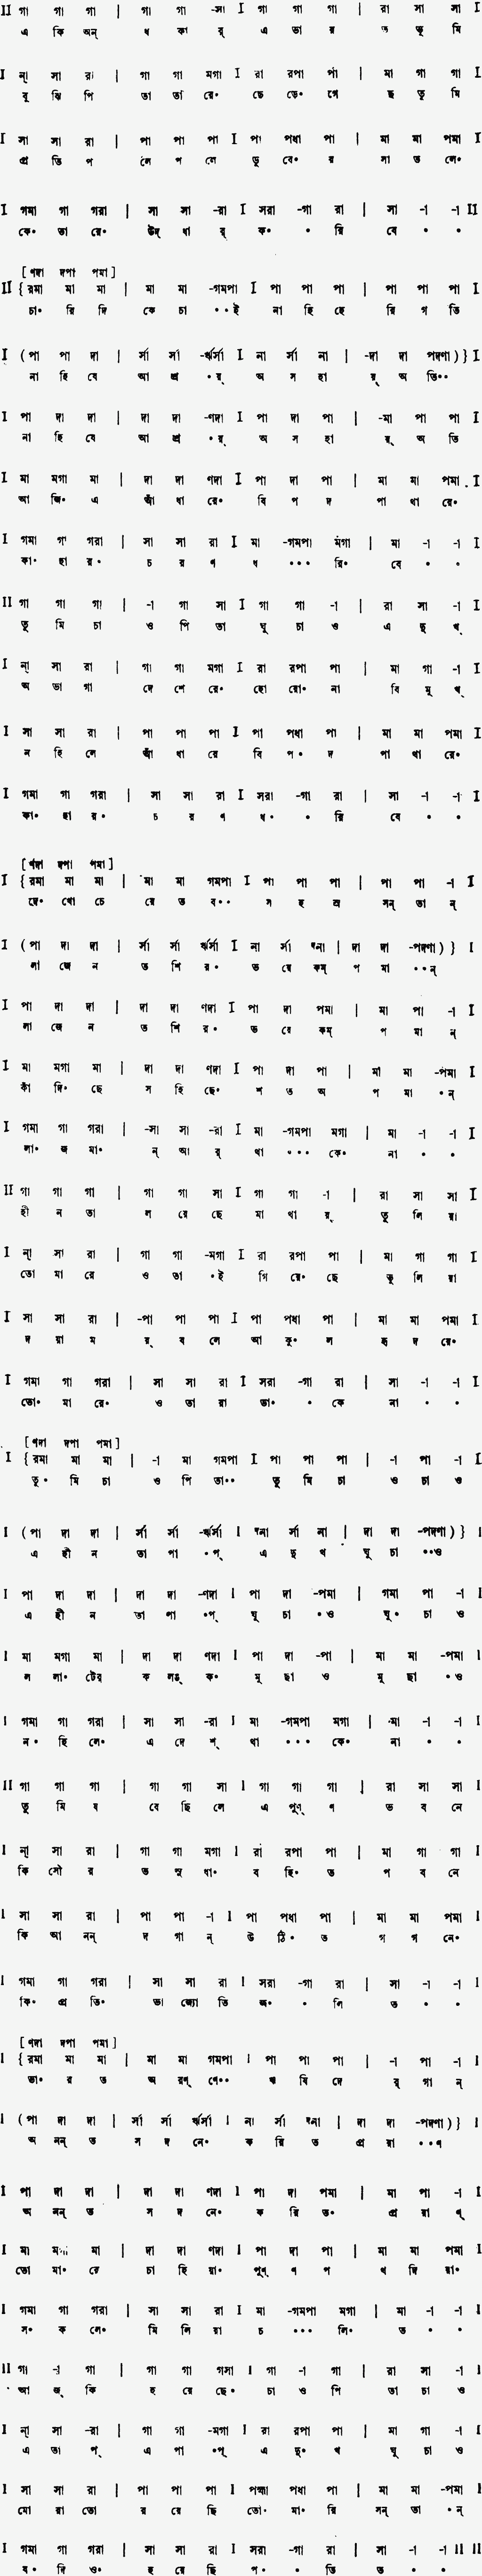 II গা গা গা | গা গা -সা I গা গা গা | রা সা সা I
এ কি অন্ ধ কা র্ এ ভা র ত ভূ মি
I ন্‌া সা রা | গা গা মগা I রা রপা পা | মা গা গা I
বু ঝি পি তা তা রে॰ ছে ড়ে॰ গে ছ তু মি
I সা সা রা | পা পা পা I পা পধা পা | মা মা পমা I
প্র তি প লে প লে ডু বে॰ র সা ত লে॰
I গমা গা গরা | সা সা -রা I সরা -গা রা | সা -া -া II
কে॰ তা রে॰ উদ্ ধা র্ ক॰ ॰ রি বে ॰ ॰
[ণদা দপা পমা]
II {রমা মা মা | মা মা -গমপা I পা পা পা | পা পা পা I
চা॰ রি দি কে চা ॰॰ই না হি হে রি গ তি
I (পা পা দা | র্সা র্সা -র্ঋর্সা I না র্সা না | -দা দা পদণা)} I
না হি যে আ শ্র ॰য়্ অ স হা য়্ অ তি॰॰
I পা দা দা | দা দা -ণদা I পা দা পা | -মা পা পা I
না হি যে আ শ্র ॰য়্ অ স হা য়্ অ তি
I মা মগা মা | দা দা ণদা I পা দা পা | মা মা পমা I
আ জি॰ এ আঁ ধা রে॰ বি প দ পা থা রে॰
I গমা গা গরা | সা সা রা I মা -গমপা মগা | মা -া -া I
কা॰ হা র॰ চ র ণ ধ ॰॰॰ রি॰ বে ॰ ॰
II গা গা গা | -া গা সা I গা গা -া | রা সা -া I
তু মি চা ও পি তা ঘু চা ও এ দু খ্
I ন্‌া সা রা | গা গা মগা I রা রপা পা | মা গা -া I
অ ভা গা দে শে রে॰ হো য়ো॰ না বি মু খ্
I সা সা রা | পা পা পা I পা পধা পা | মা মা পমা I
ন হি লে আঁ ধা রে বি প॰ দ পা থা রে॰
I গমা গা গরা | সা সা রা I সরা -গা রা | সা -া -া I
কা॰ হা র॰ চ র ণ ধ॰ ॰ রি বে ॰ ॰
[ণদা দপা পমা]
I {রমা মা মা | মা মা গমপা I পা পা পা | পা পা -া I
দে॰ খো চে য়ে ত ব॰॰ স হ স্র সন্ তা ন্
I (পা দা দা | র্সা র্সা র্ঋর্সা I না র্সা ণনা | দা দা -পদণা)} I
লা জে ন ত শি র॰ ভ য়ে কম্ প মা ॰॰ন্
I পা দা দা | দা দা ণদা I পা দা পমা | মা পা -া I
লা জে ন ত শি র॰ ভ য়ে কম্ প মা ন্
I মা মগা মা | দা দা ণদা I পা দা পা | মা মা -পমা I
কাঁ দি॰ ছে স হি ছে॰ শ ত অ প মা ॰ন্
I গমা গা গরা | -সা সা -রা I মা -গমপা মগা | মা -া -া I
লা॰ জ মা॰ ন্ আ র্ থা ॰॰॰ কে॰ না ॰ ॰
II গা গা গা | গা গা সা I গা গা -া | রা সা সা I
হী ন তা ল য়ে ছে মা থা য়্ তু লি য়া
I ন্‌া সা রা | গা গা -মগা I রা রপা পা | মা গা গা I
তো মা রে ও তা ॰ই গি য়ে॰ ছে ভু লি য়া
I সা সা রা | -পা পা পা I পা পধা পা | মা মা পমা I
দ য়া ম য়্ ব লে আ কু॰ ল হৃ দ য়ে॰
I গমা গা গরা | সা সা রা I সরা -গা রা | সা -া -া I
তো॰ মা রে॰ ও তা রা ডা॰ ॰ কে না ॰ ॰
[ণদা দপা পমা]
I {রমা মা মা | -া মা গমপা I পা পা পা | -া পা -া I
তু॰ মি চা ও পি তা॰॰ তু মি চা ও চা ও
I (পা দা দা | র্সা র্সা -র্ঋর্সা I ণনা র্সা না | দা দা -পদণা)} I
এ হী ন তা পা ॰প্ এ দু খ ঘু চা ॰॰ও
I পা দা দা | দা দা -ণদা I পা দা -পমা | গমা পা -া I
এ হী ন তা পা ॰প্ ঘু চা ॰ও ঘু॰ চা ও
I মা মগা মা | দা দা ণদা I পা দা -পা | মা মা -পমা I
ল লা॰ টের্ ক লঙ্ ক॰ মু ছা ও মু ছা ॰ও
I গমা গা গরা | সা সা -রা I মা -গমপা মগা | মা -া -া I
ন॰ হি লে॰ এ দে শ্ থা ॰॰॰ কে॰ না ॰ ॰
II গা গা গা | গা গা সা I গা গা গা | রা সা সা I
তু মি য বে ছি লে এ পুণ্ ণ ভ ব নে
I ন্‌া সা রা | গা গা মগা I রা রপা পা | মা গা গা I
কি সৌ র ভ সু ধা॰ ব হি॰ ত প ব নে
I সা সা রা | পা পা -া I পা পধা পা | মা মা পমা I
কি আ নন্ দ গা ন্ উ ঠি॰ ত গ গ নে॰
I গমা গা গরা | সা সা রা I সরা -গা রা | সা -া -া I
কি॰ প্র তি॰ ভা জ্যো তি জ॰ ॰ লি ত ॰ ॰
[ণদা দপা পমা]
I {রমা মা মা | মা মা গমপা I পা পা পা | -া পা -া I
ভা॰ র ত অ রণ্ ণে॰॰ ঋ ষি দে র্ গা ন্
I (পা দা দা | র্সা র্সা র্ঋর্সা I না র্সা ণনা | দা দা -পদণা)} I
অ নন্ ত স দ নে॰ ক রি ত প্র য়া ॰॰ণ
I পা দা দা | দা দা ণদা I পা দা পমা | মা পা -া I
অ নন্ ত স দ নে॰ ক রি ত॰ প্র য়া ণ্
I মা মগা মা | দা দা ণদা I পা দা পা | মা মা পমা I
তো মা॰ রে চা হি য়া॰ পুণ্ ণ প থ দি য়া॰
I গমা গা গরা | সা সা রা I মা -গমপা মগা | মা -া -া I
স॰ ক লে॰ মি লি য়া চ ॰॰॰ লি॰ ত ॰ ॰
II গা -া গা | গা গা গসা I গা -া গা | রা সা -া I
আ জ্ কি হ য়ে ছে॰ চা ও পি তা চা ও
I ন্‌া সা -রা | গা গা -মগা I রা রপা পা | মা গা -া I
এ তা প্ এ পা ॰প্ এ দু॰ খ ঘু চা ও
I সা সা রা | পা পা পা I পহ্মা পধা পা | মা মা -পমা I
মো রা তো র য়ে ছি তো॰ মা॰ রি সন্ তা ॰ন্
I গমা গা গরা | সা সা রা I সরা -গা রা | সা -া -া II II
য॰ দি ও॰ হ য়ে ছি প॰ ॰ তি ত ॰ ॰